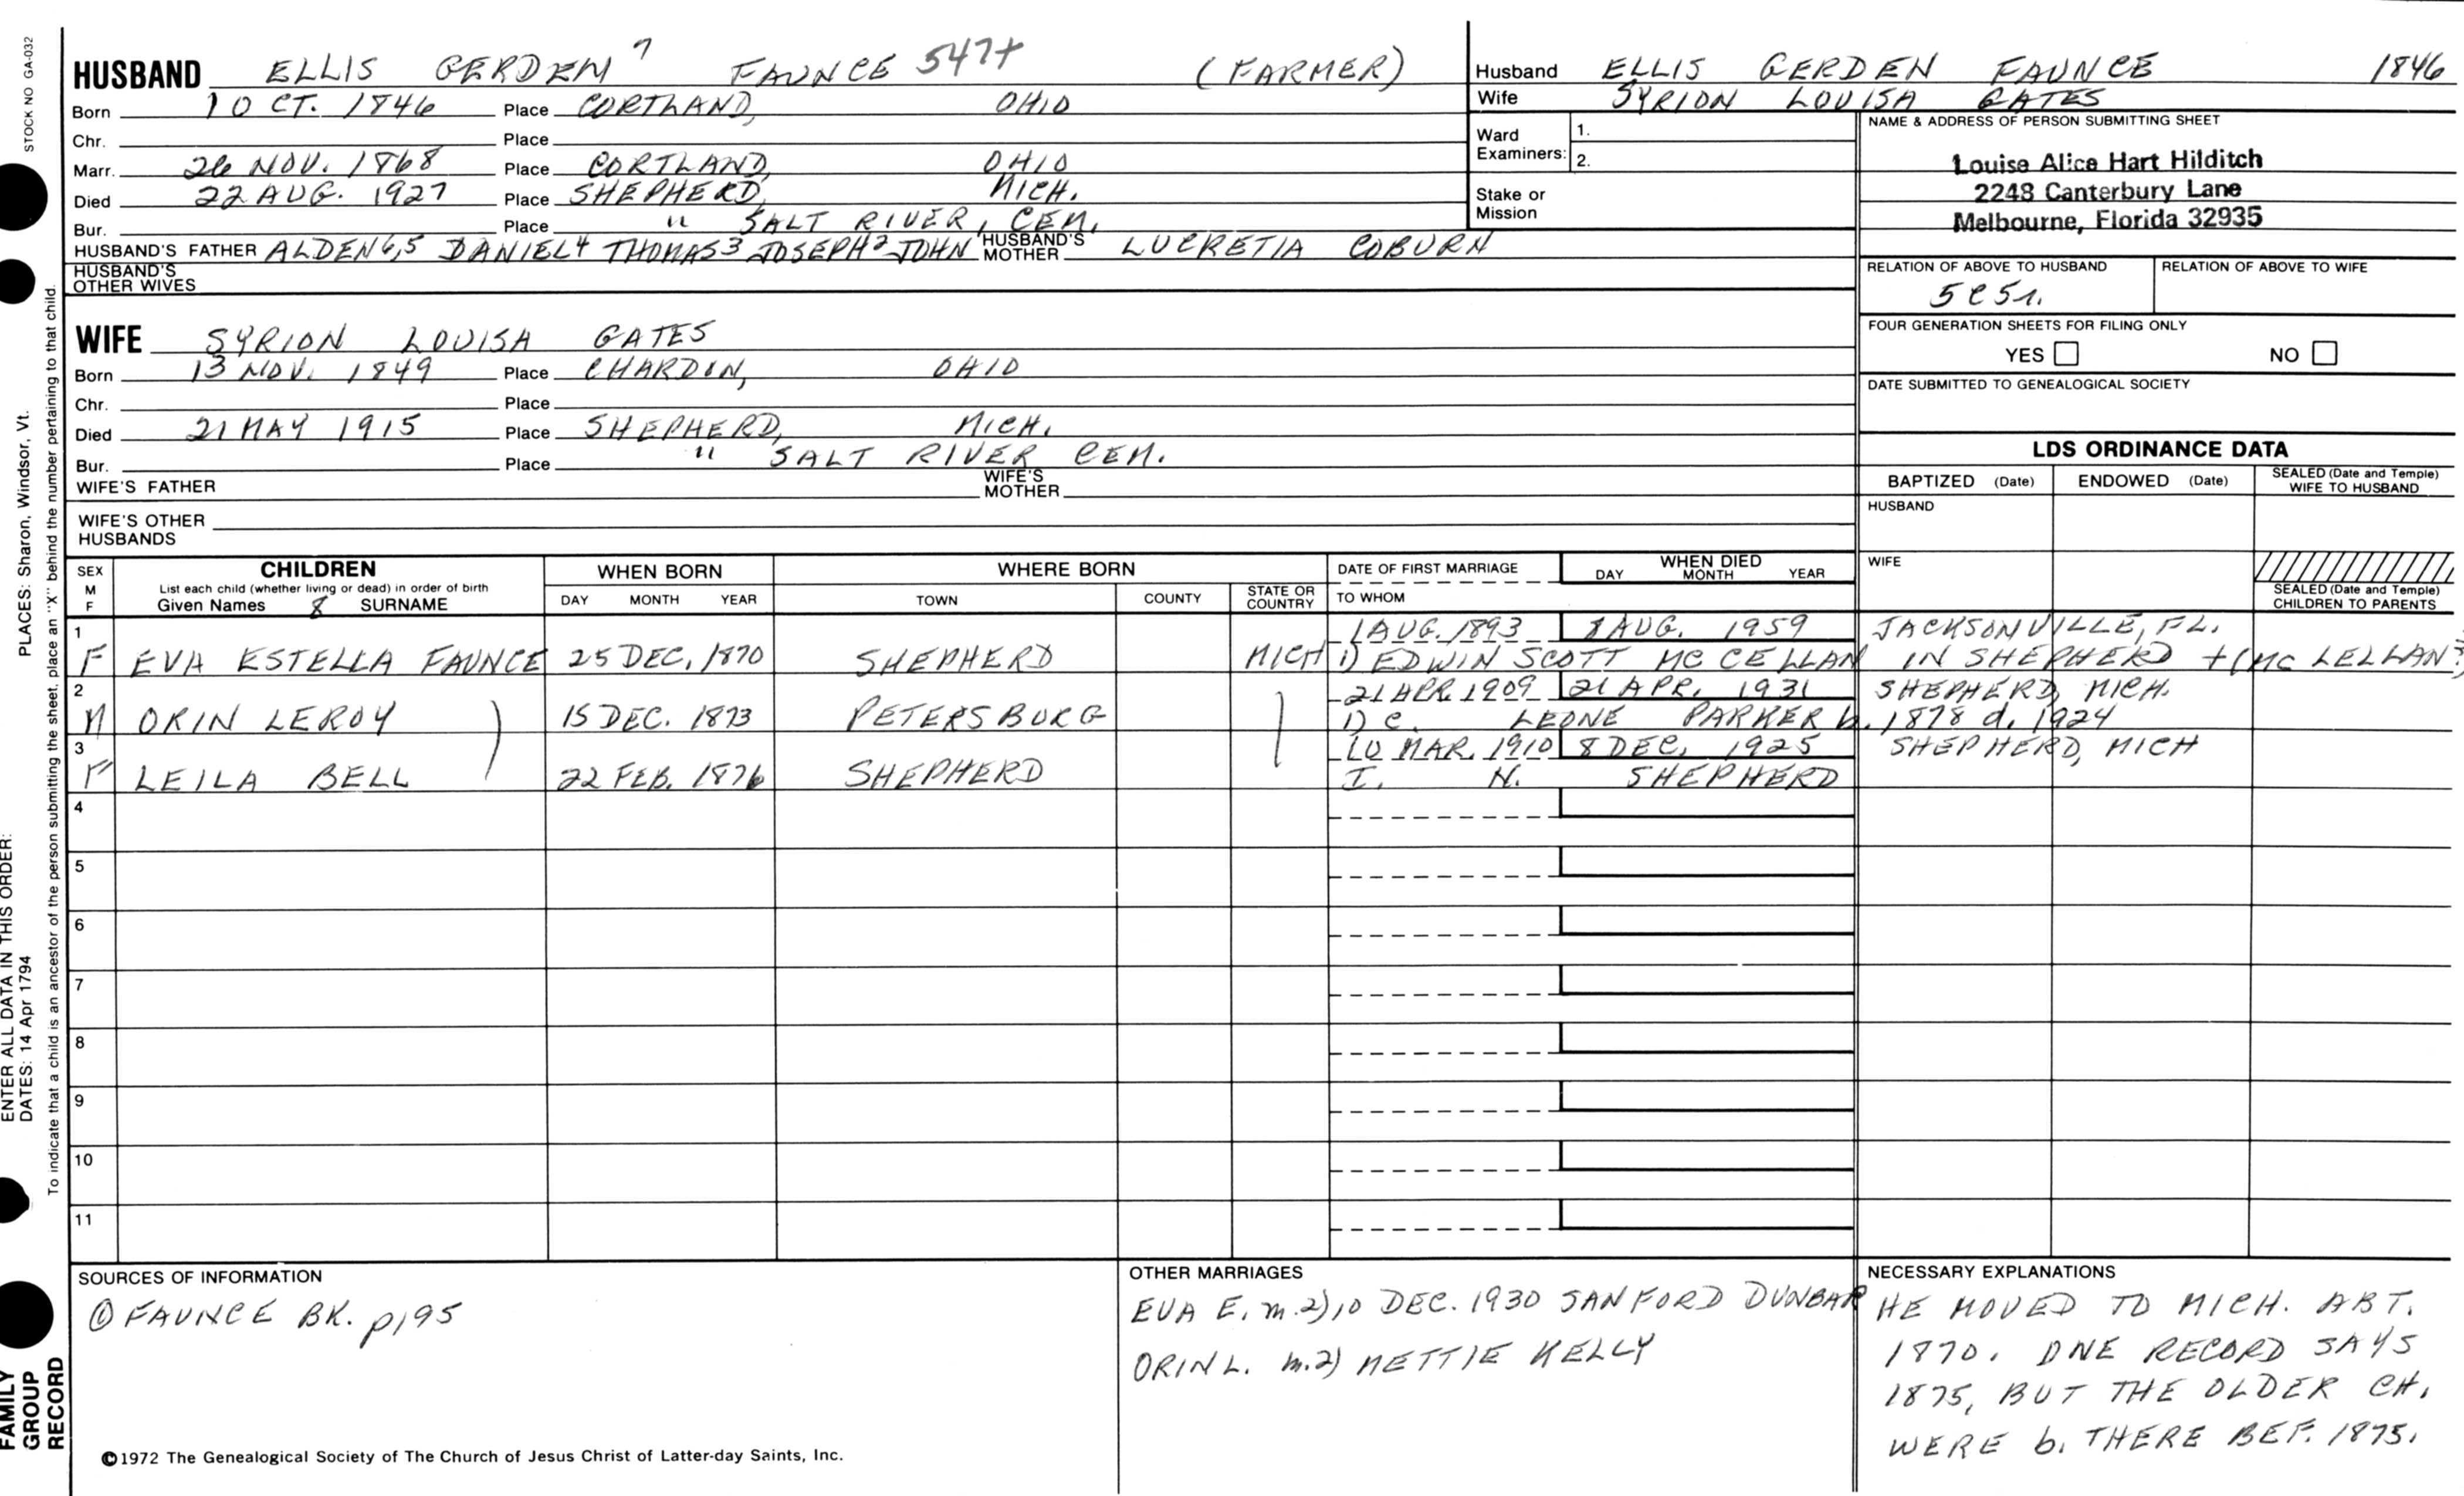 STOCK NO GA-032
HUSBAND ELLIS GERDEN 7 FAUNCE 547+ (FARMER)
Born 1 OCT. 1846 Place CORTLAND, OHIO
Chr. Place
Marr. 26 NOV. 1868 Place CORTLAND, OHIO
Died 22 AUG. 1927 Place SHEPHERD, MICH.
Bur. Place " SALT RIVER, CEM.
HUSBAND'S FATHER ALDEN6,5 DANIEL4 THOMAS3 JOSEPH2 JOHN HUSBAND'S MOTHER LUCRETIA COBURN
HUSBAND'S OTHER WIVES
WIFE SYRION LOUISA GATES
Born 13 NOV. 1849 Place CHARDON, OHIO
Chr. Place
Died 21 MAY 1915 Place SHEPHERD, MICH.
Bur. Place " SALT RIVER CEM.
WIFE'S FATHER WIFE'S MOTHER
WIFE'S OTHER HUSBANDS
Husband ELLIS GERDEN FAUNCE 1846
Wife SYRION LOUISA GATES
Ward Examiners: 1.
2.
Stake or Mission
NAME & ADDRESS OF PERSON SUBMITTING SHEET
Louise Alice Hart Hilditch
2248 Canterbury Lane
Melbourne, Florida 32935
RELATION OF ABOVE TO HUSBAND RELATION OF ABOVE TO WIFE
5C5r.
FOUR GENERATION SHEETS FOR FILING ONLY
YES NO
DATE SUBMITTED TO GENEALOGICAL SOCIETY
LDS ORDINANCE DATA
BAPTIZED (Date) ENDOWED (Date) SEALED (Date and Temple) WIFE TO HUSBAND
HUSBAND
WIFE
SEALED (Date and Temple) CHILDREN TO PARENTS
SEX M F
CHILDREN
List each child (whether living or dead) in order of birth
Given Names & SURNAME
WHEN BORN
DAY MONTH YEAR
WHERE BORN
TOWN COUNTY STATE OR COUNTRY
DATE OF FIRST MARRIAGE
TO WHOM
WHEN DIED
DAY MONTH YEAR
1 1 AUG. 1893 8 AUG. 1959 JACKSONVILLE, FL.
F EVA ESTELLA FAUNCE 25 DEC. 1870 SHEPHERD MICH 1) EDWIN SCOTT MC CELLAN IN SHEPHERD + (MC LELLAN?)
2 21 APR. 1909 21 APR. 1931 SHEPHERD, MICH.
M ORIN LEROY 15 DEC. 1873 PETERSBURG 1) C. LEONE PARKER b. 1878 d. 1924
3 10 MAR. 1910 8 DEC. 1925 SHEPHERD, MICH
F LEILA BELL 22 FEB. 1876 SHEPHERD I. N. SHEPHERD
4
5
6
7
8
9
10
11
SOURCES OF INFORMATION
① FAUNCE BK. p195
OTHER MARRIAGES
EVA E. m. 2) 10 DEC. 1930 SANFORD DUNBAR
ORIN L. m. 2) NETTIE KELLY
NECESSARY EXPLANATIONS
HE MOVED TO MICH. ABT.
1870. ONE RECORD SAYS
1875, BUT THE OLDER CH.
WERE b. THERE BEF. 1875.
©1972 The Genealogical Society of The Church of Jesus Christ of Latter-day Saints, Inc.
FAMILY GROUP RECORD
ENTER ALL DATA IN THIS ORDER:
DATES: 14 Apr 1794 PLACES: Sharon, Windsor, Vt.
To indicate that a child is an ancestor of the person submitting the sheet, place an "X" behind the number pertaining to that child.